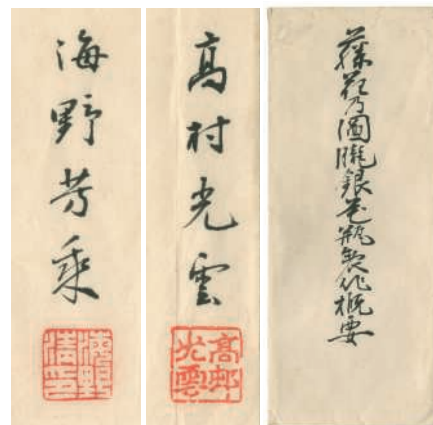 藤花乃圖朧銀花瓶製作概要
高村光雲
高邨光雲
海野芳乗